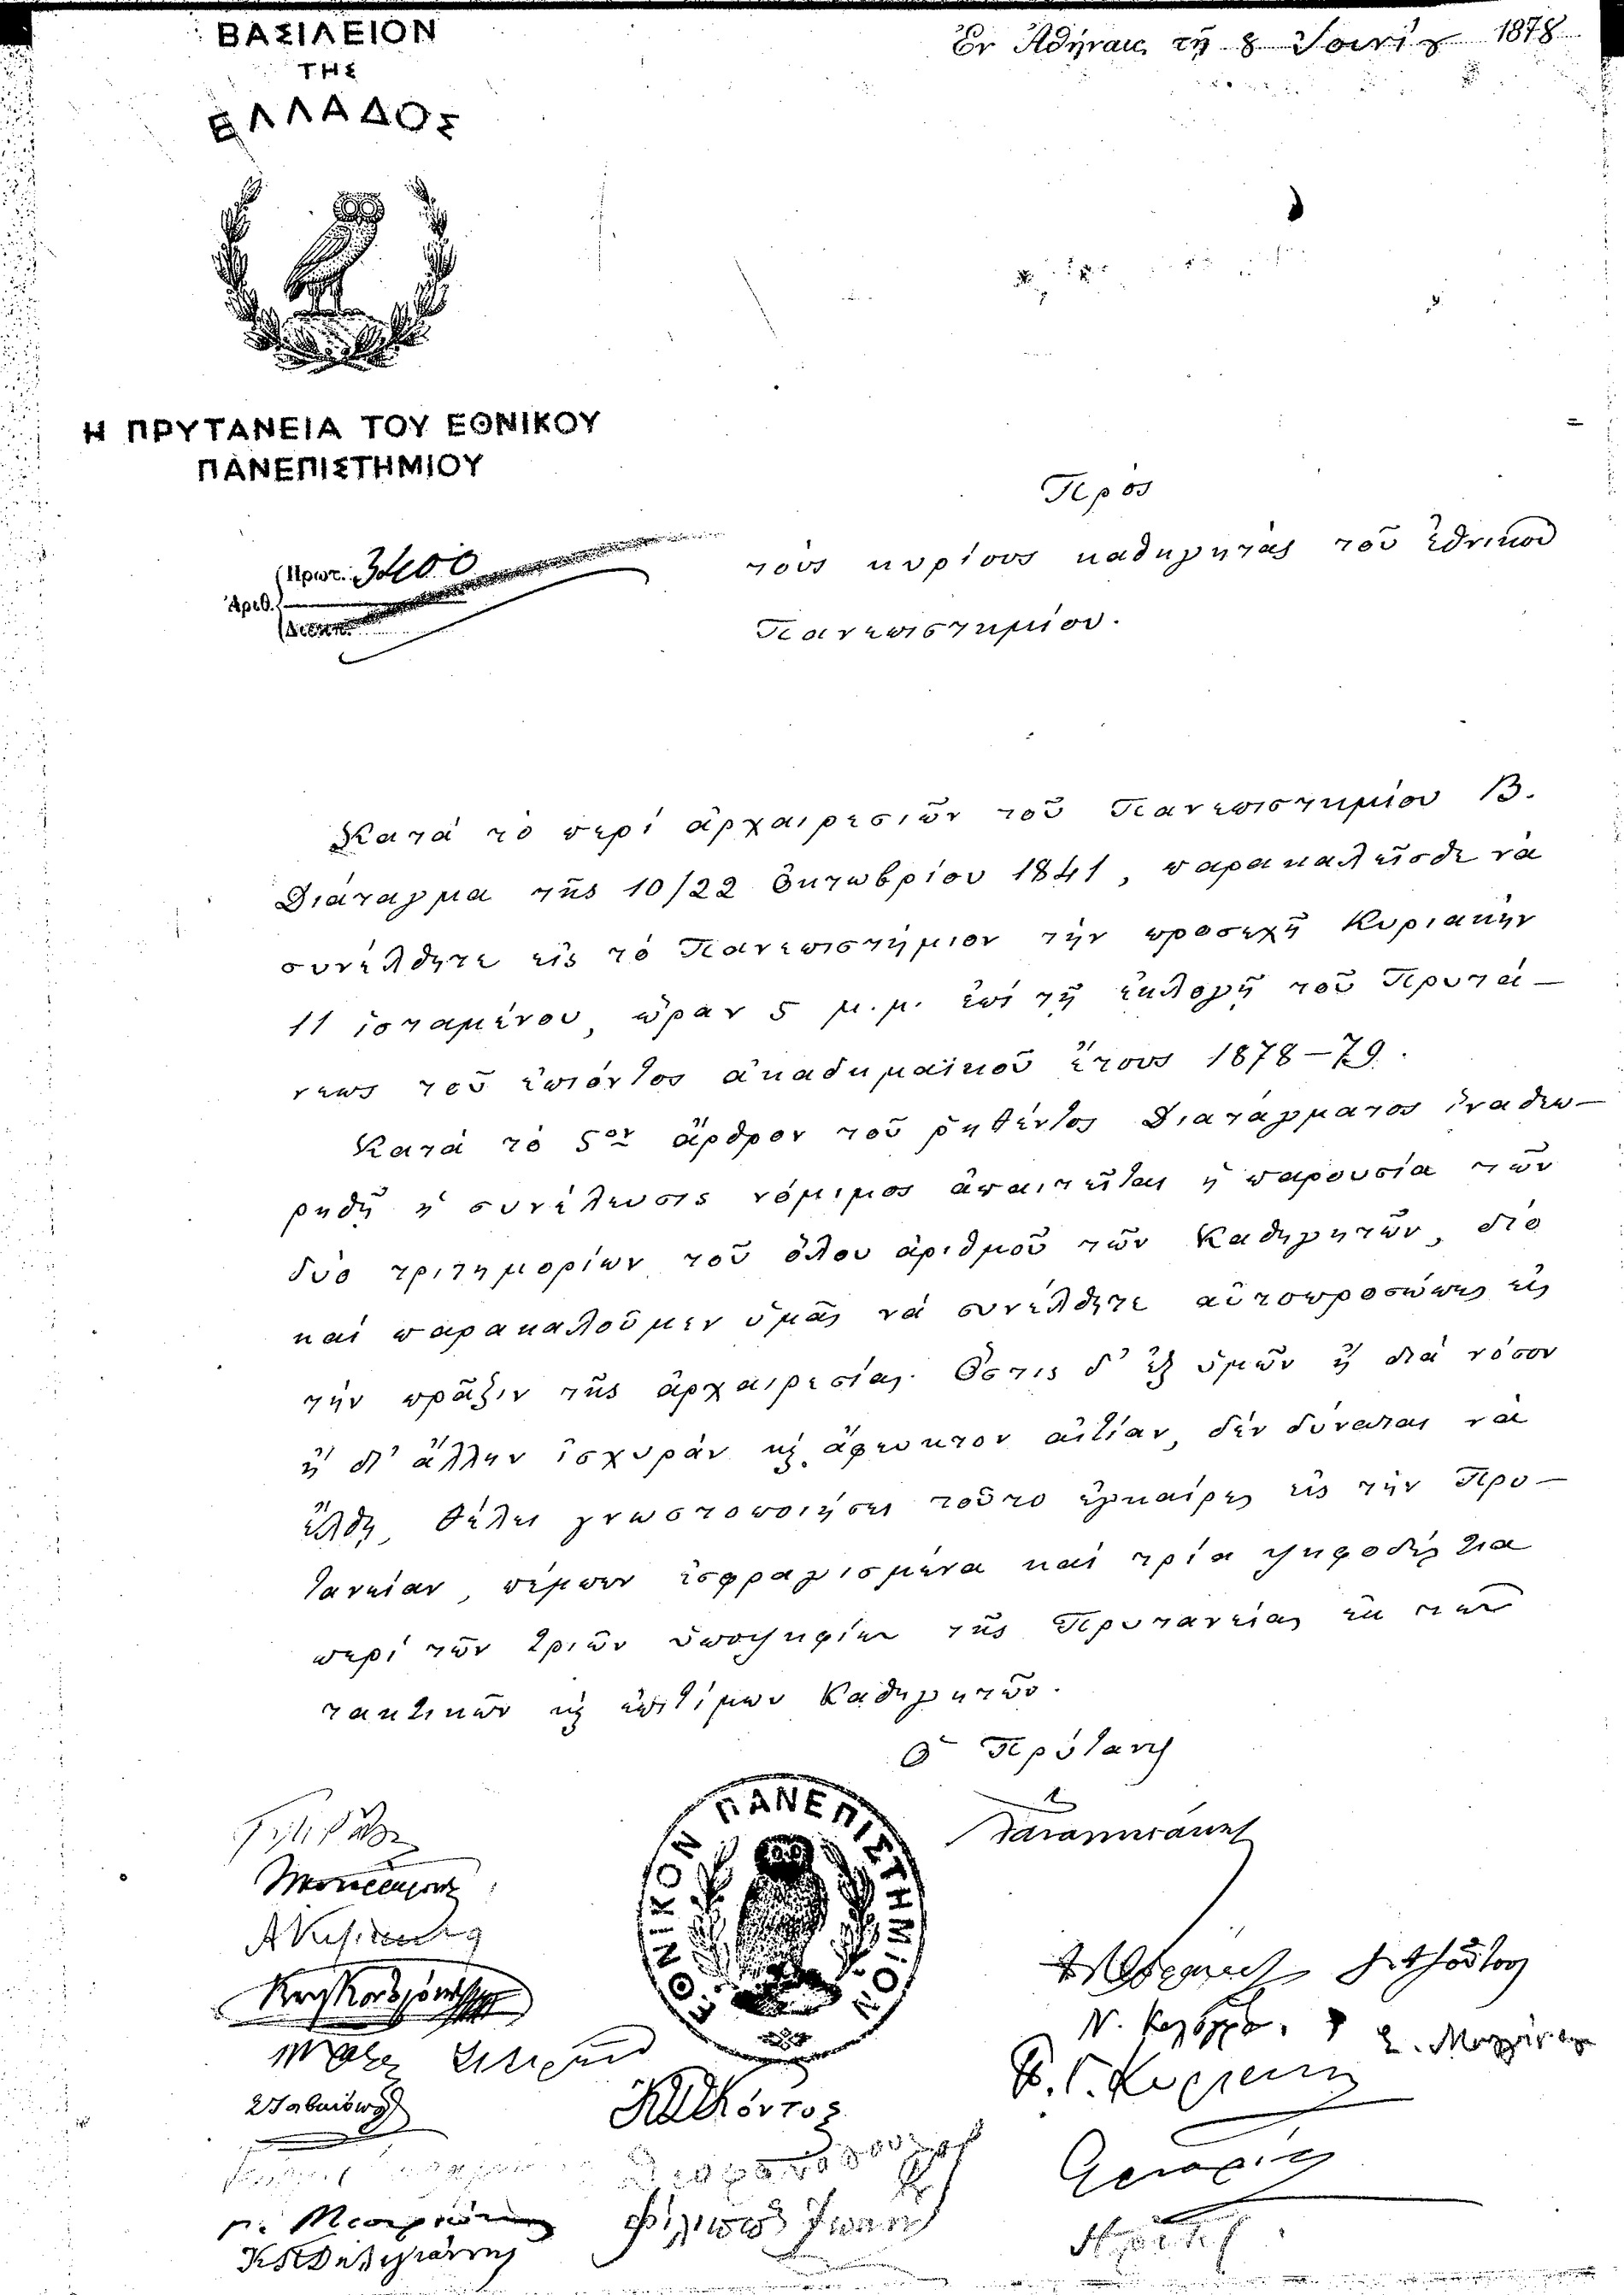 ΒΑΣΙΛΕΙΟΝ
ΤΗΣ
ΕΛΛΑΔΟΣ
Ἐν Ἀθήναις τῇ 8 Ἰουνίου 1878
Η ΠΡΥΤΑΝΕΙΑ ΤΟΥ ΕΘΝΙΚΟΥ
ΠΑΝΕΠΙΣΤΗΜΙΟΥ
Ἀριθ. Πρωτ. 3400
Διεκπ.
Πρὸς
τοὺς κυρίους καθηγητὰς τοῦ Ἐθνικοῦ
Πανεπιστημίου.
Κατὰ τὸ περὶ ἀρχαιρεσιῶν τοῦ Πανεπιστημίου Β.
Διάταγμα τῆς 10/22 Ὀκτωβρίου 1841, παρακαλεῖσθε νὰ
συνέλθητε εἰς τὸ Πανεπιστήμιον τὴν προσεχῆ Κυριακὴν
11 ἱσταμένου, ὥραν 5 μ.μ. ἐπὶ τῇ ἐκλογῇ τοῦ Πρυτά–
νεως τοῦ ἐπιόντος ἀκαδημαϊκοῦ ἔτους 1878–79.
Κατὰ τὸ 5ον ἄρθρον τοῦ ῥηθέντος Διατάγματος ἵνα θεω–
ρηθῇ ἡ συνέλευσις νόμιμος ἀπαιτεῖται ἡ παρουσία τῶν
δύο τριτημορίων τοῦ ὅλου ἀριθμοῦ τῶν Καθηγητῶν, διὸ
καὶ παρακαλοῦμεν ὑμᾶς νὰ συνέλθητε αὐτοπροσώπως εἰς
τὴν πρᾶξιν τῆς ἀρχαιρεσίας. Ὅστις δ' ἐξ ὑμῶν ἢ διὰ νόσον
ἢ δι' ἄλλην ἰσχυρὰν κ̀ ἄφευκτον αἰτίαν, δὲν δύναται νὰ
ἔλθῃ, θέλει γνωστοποιήσει τοῦτο ἐγκαίρως εἰς τὴν Πρυ–
τανείαν, πέμπων ἐσφραγισμένα καὶ τρία ψηφοδέλτια
περὶ τῶν τριῶν ὑποψηφίων τῆς Πρυτανείας ἐκ τῶν
τακτικῶν κ̀ ἐπιτίμων Καθηγητῶν.
Ὁ Πρύτανις
ΕΘΝΙΚΟΝ ΠΑΝΕΠΙΣΤΗΜΙΟΝ
Κόντος
Φίλιππος Ἰωάννου
Κ Ν Δηλιγιάννης